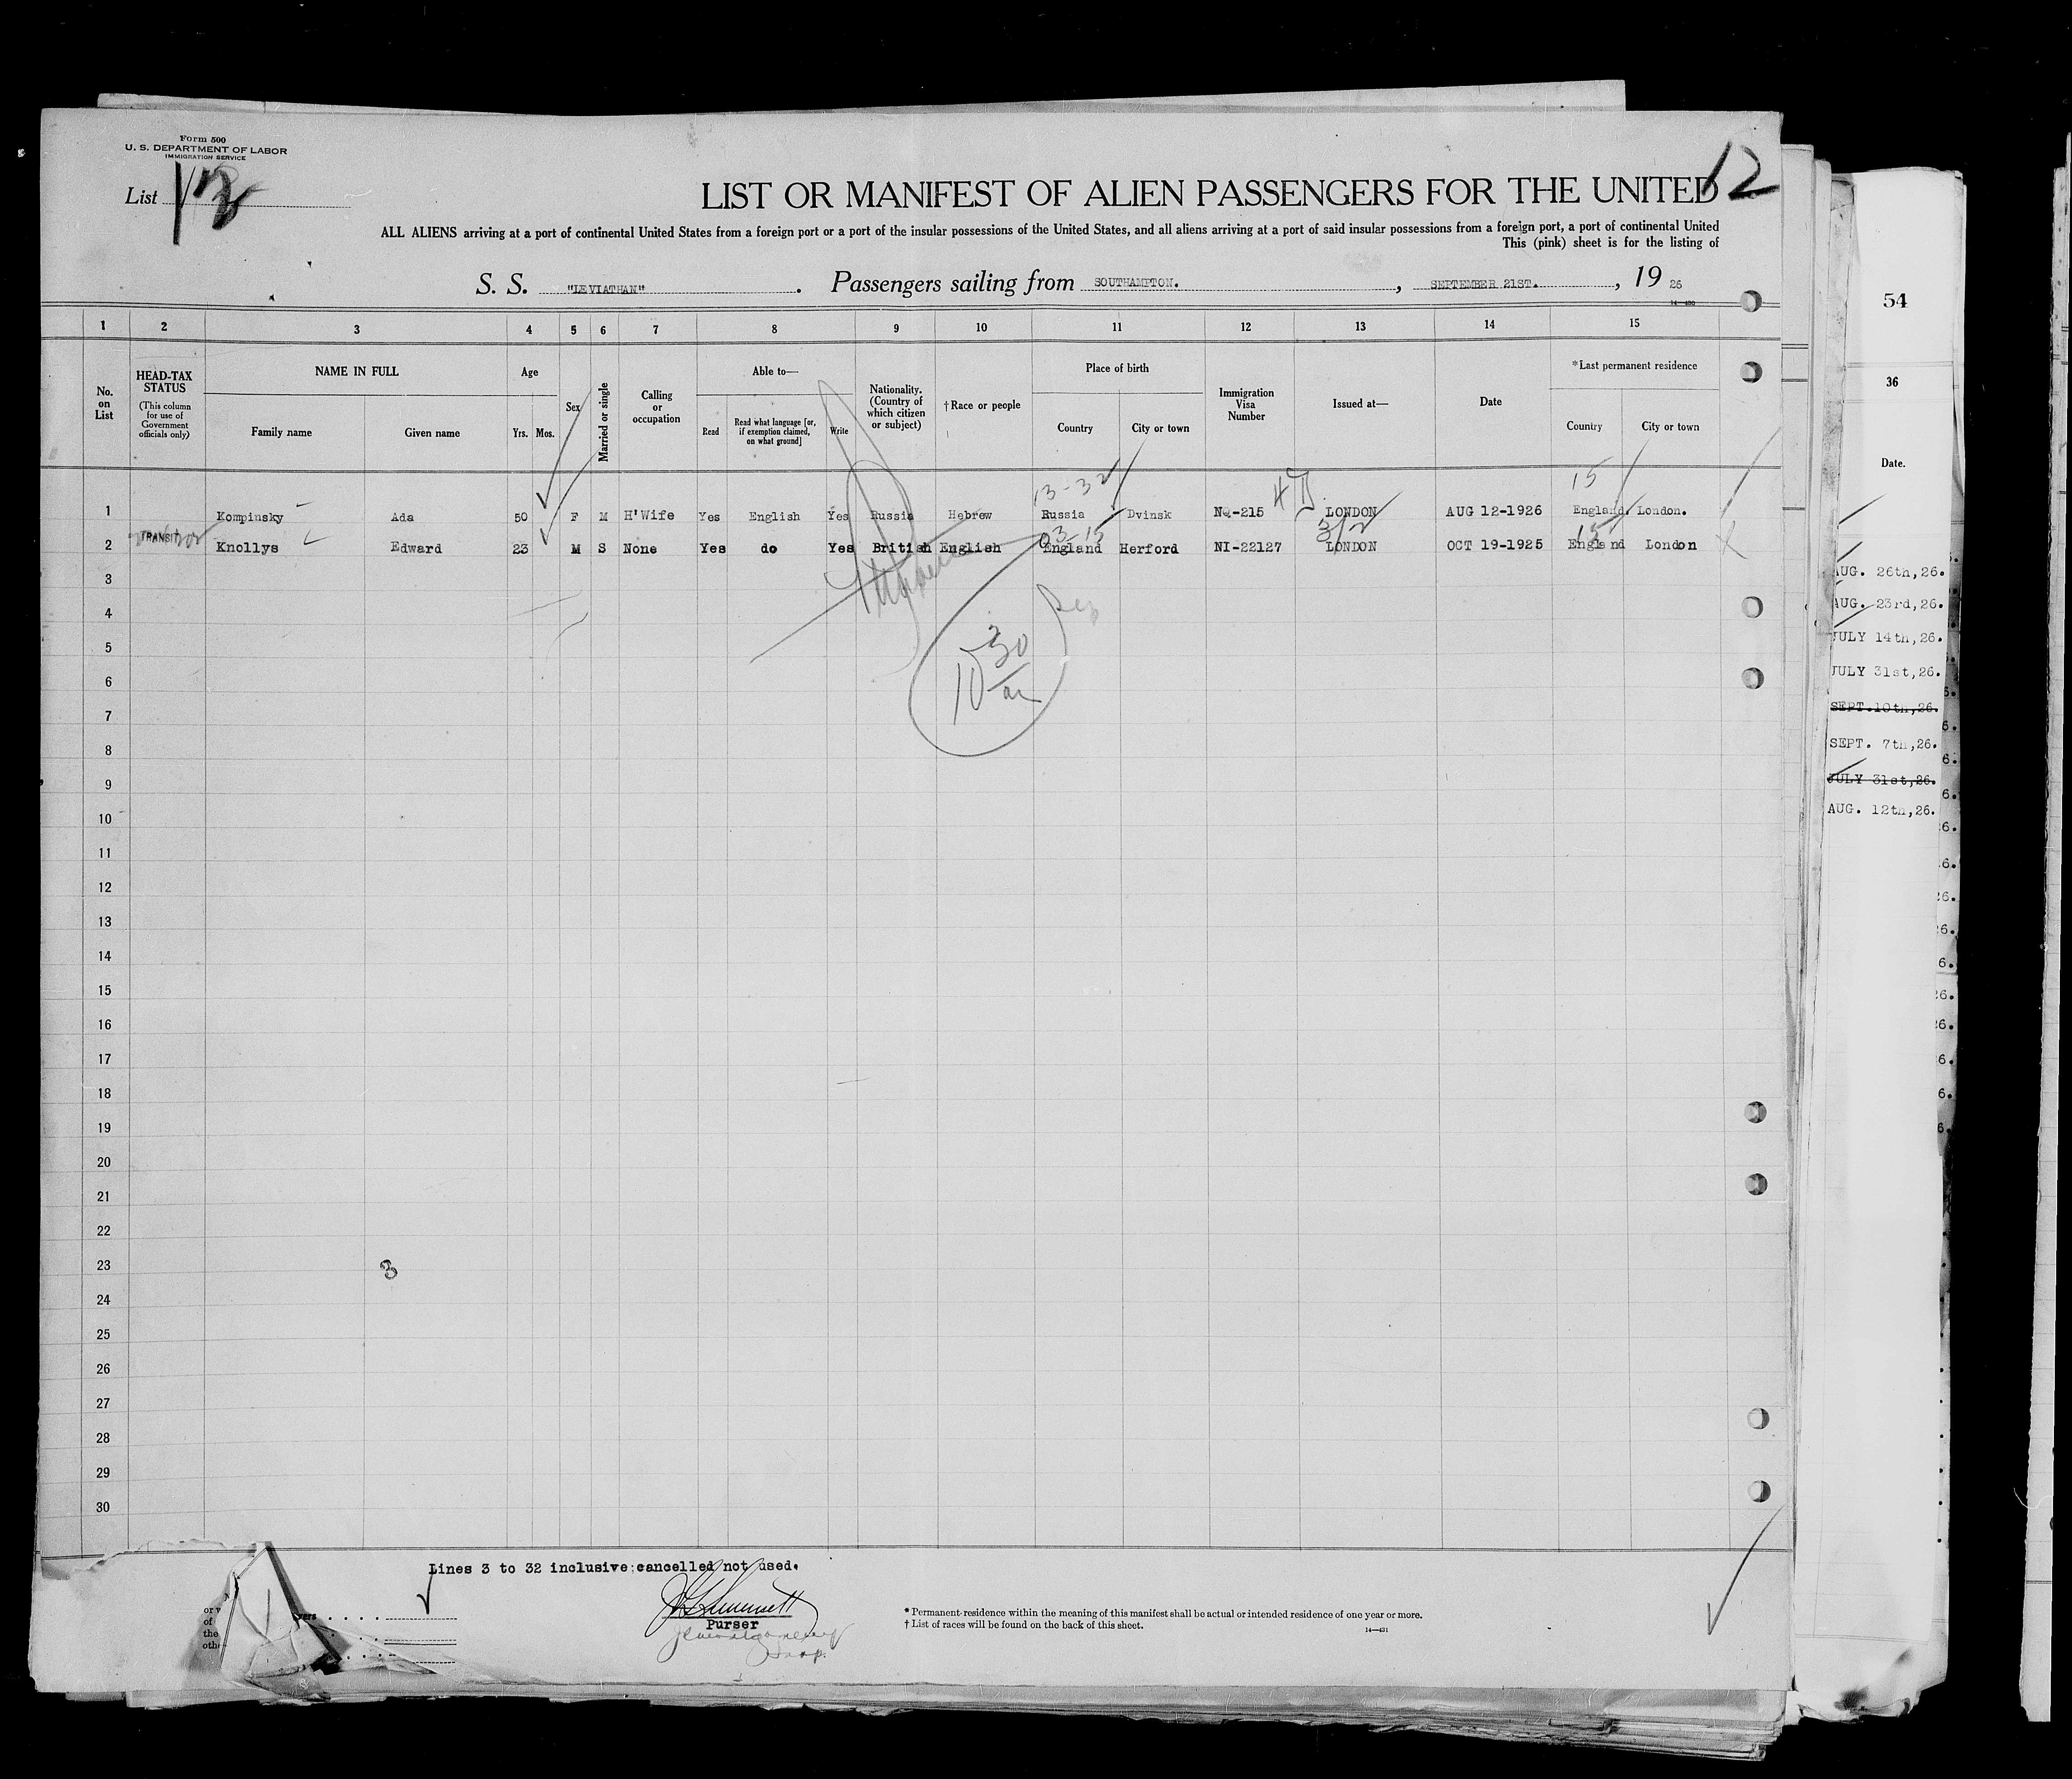 Form 500
U. S. DEPARTMENT OF LABOR
IMMIGRATION SERVICE
List
12
LIST OR MANIFEST OF ALIEN PASSENGERS FOR THE UNITED
ALL ALIENS arriving at a port of continental United States from a foreign port or a port of the insular possessions of the United States, and all aliens arriving at a port of said insular possessions from a foreign port, a port of continental United
This (pink) sheet is for the listing of
S. S. "LEVIATHAN". Passengers sailing from SOUTHAMPTON. , SEPTEMBER 21ST. , 19 26
14-430
1 2 3 4 5 6 7 8 9 10 11 12 13 14 15
No. on List
HEAD-TAX STATUS
(This column for use of Government officials only)
NAME IN FULL
Family name Given name
Age
Yrs. Mos.
Sex
Married or single
Calling or occupation
Able to—
Read
Read what language [or, if exemption claimed, on what ground]
Write
Nationality. (Country of which citizen or subject)
†Race or people
Place of birth
Country City or town
Immigration Visa Number
Issued at—
Date
*Last permanent residence
Country City or town
13-32 15
1 Kompinsky Ada 50 F M H'Wife Yes English Yes Russia Hebrew Russia Dvinsk -215 LONDON AUG 12-1926 England. London.
03-15 3/2 15
2 TRANSIT Knollys Edward 23 M S None Yes do Yes British English England Herford NI-22127 LONDON OCT 19-1925 England London
3
4
5
10 30 am
6
7
8
9
10
11
12
13
14
15
16
17
18
19
20
21
22
23
3
24
25
26
27
28
29
30
Lines 3 to 32 inclusive cancelled not used.
Purser
* Permanent residence within the meaning of this manifest shall be actual or intended residence of one year or more.
† List of races will be found on the back of this sheet.
14-431
or
of
the
54
36
Date.
AUG. 26th,26.
AUG. 23rd,26.
JULY 14th,26.
JULY 31st,26.
SEPT.10th,26.
SEPT. 7th,26.
JULY 31st,26.
AUG. 12th,26.